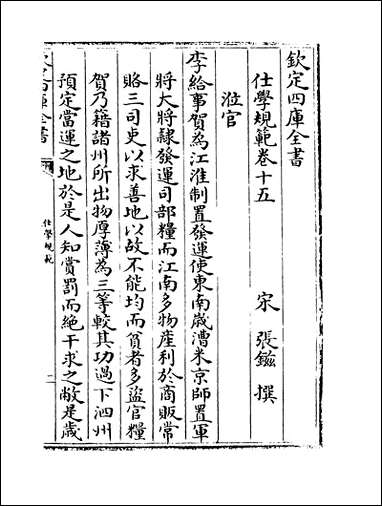 欽定四庫全書
仕學規範卷十五
宋 張鎡 撰
涖官
李給事賀為江淮制置發運使東南歲漕米京師置軍
將大將隷發運司部糧而江南多物產利於商販常
賂三司吏以求善地以故不能均而貧者多盜官糧
賀乃籍諸州所出物厚薄為三等較其功過下泗州
預定當運之地於是人知賞罰而絶干求之敝是歲
仕學規範